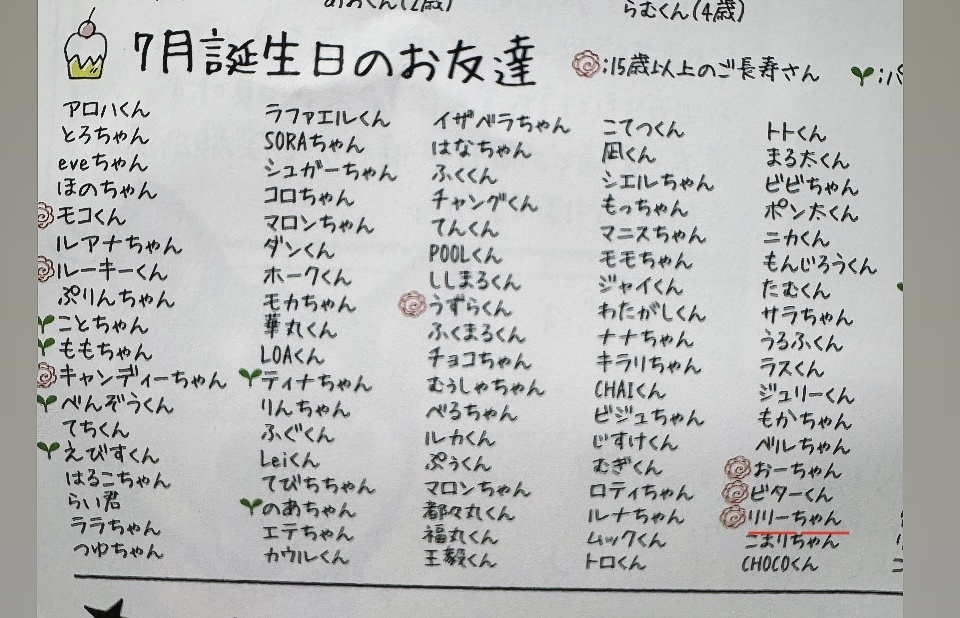 らむくん(4歳)
7月誕生日のお友達
:15歳以上のご長寿さん
アロハくん
とろちゃん
eveちゃん
ほのちゃん
モコくん
ルアナちゃん
ルーキーくん
ぷりんちゃん
ことちゃん
ももちゃん
キャンディーちゃん
べんぞうくん
てちくん
えびすくん
はるこちゃん
らい君
ララちゃん
つゆちゃん
ラファエルくん
SORAちゃん
シュガーちゃん
コロちゃん
マロンちゃん
ダンくん
ホークくん
モカちゃん
華丸くん
LOAくん
ティナちゃん
りんちゃん
ふぐくん
Leiくん
てびちちゃん
のあちゃん
エテちゃん
カウルくん
イザベラちゃん
はなちゃん
ふくくん
チャングくん
てんくん
POOLくん
ししまるくん
うずらくん
ふくまるくん
チョコちゃん
むぅしゃちゃん
べるちゃん
ルカくん
ぷぅくん
マロンちゃん
都々丸くん
福丸くん
王毅くん
こてつくん
凪くん
シエルちゃん
もっちゃん
マニスちゃん
モモちゃん
ジャイくん
わたがしくん
ナナちゃん
キラリちゃん
CHAIくん
ビジュちゃん
じすけくん
むぎくん
ロティちゃん
ルナちゃん
ムックくん
トロくん
トトくん
まる太くん
ビビちゃん
ポン太くん
ニカくん
もんじろうくん
たむくん
サラちゃん
うるふくん
ラスくん
ジュリーくん
もかちゃん
ベルちゃん
おーちゃん
ビターくん
リリーちゃん
こまりちゃん
CHOCOくん